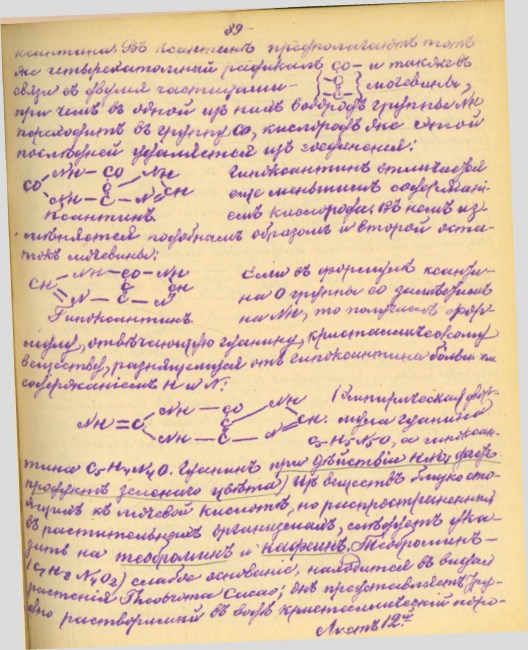 89
ксантина. Въ ксантинѣ предполагаютъ тотъ
же четырехатомный радикалъ CO— и также въ
C
C
связи съ двумя частицами мочевины,
при чемъ въ одной изъ нихъ водородъ группы NH
переходитъ въ группу CO, кислородъ же этой
последней удаляется изъ соединенія:
CO NH — CO NH
C CH
NH — C — N
Ксантинъ
Гипоксантинъ отличается
еще меньшимъ содержані-
емъ кислорода. Въ немъ из-
мѣняется подобнымъ образомъ и второй оста-
токъ мочевины:
CH NH — CO — NH
C CH
N — C — N
Гипоксантинъ
Если въ формулѣ ксанти-
на O группы CO замѣстимъ
на NH, то получимъ фор-
мулу, отвѣчающую гуанину, кристаллическому
веществу, разнящемуся отъ гипоксантина
содержаніемъ H и N:
NH = C NH — CO NH
C CH.
NH — C — N
(Эмпирическая фор-
мула гуанина
C5H5N5O, а гипоксан-
тина C5H4N4O. Гуанинъ при дѣйствіи
продуктъ зеленаго цвѣта) Изъ веществъ близко сто-
ящихъ къ мочевой кислотѣ, но распространенныхъ
въ растительныхъ организмахъ, слѣдуетъ ука-
зать на теоброминъ и кофеинъ. Теоброминъ —
(C7H8N4O2) слабое основаніе, находится въ
растенія Theobroma Cacao; онъ представляетъ тру-
дно растворимый въ водѣ кристаллическій поро-
Листъ 12й